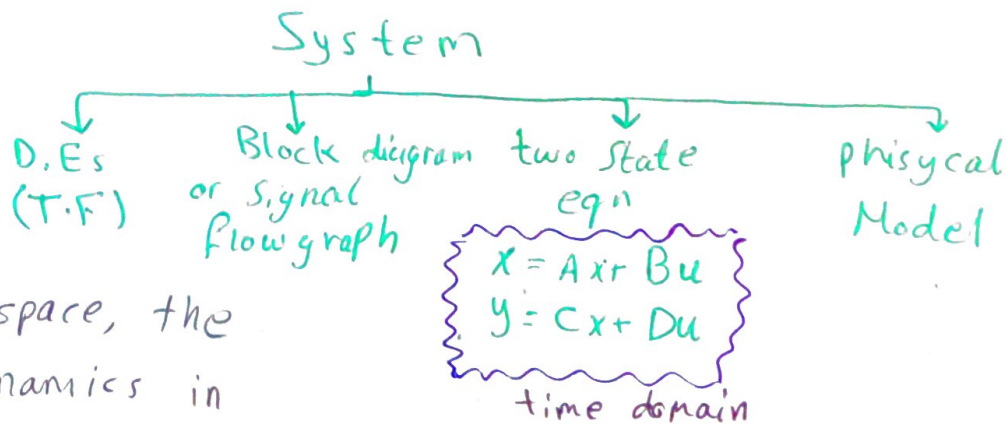 System
D.Es
(T.F)
Block diagram
or signal
flow graph
two State
eqn
X = Ax+ Bu
y = Cx + Du
time domain
phisycal
Model
space, the
namics in